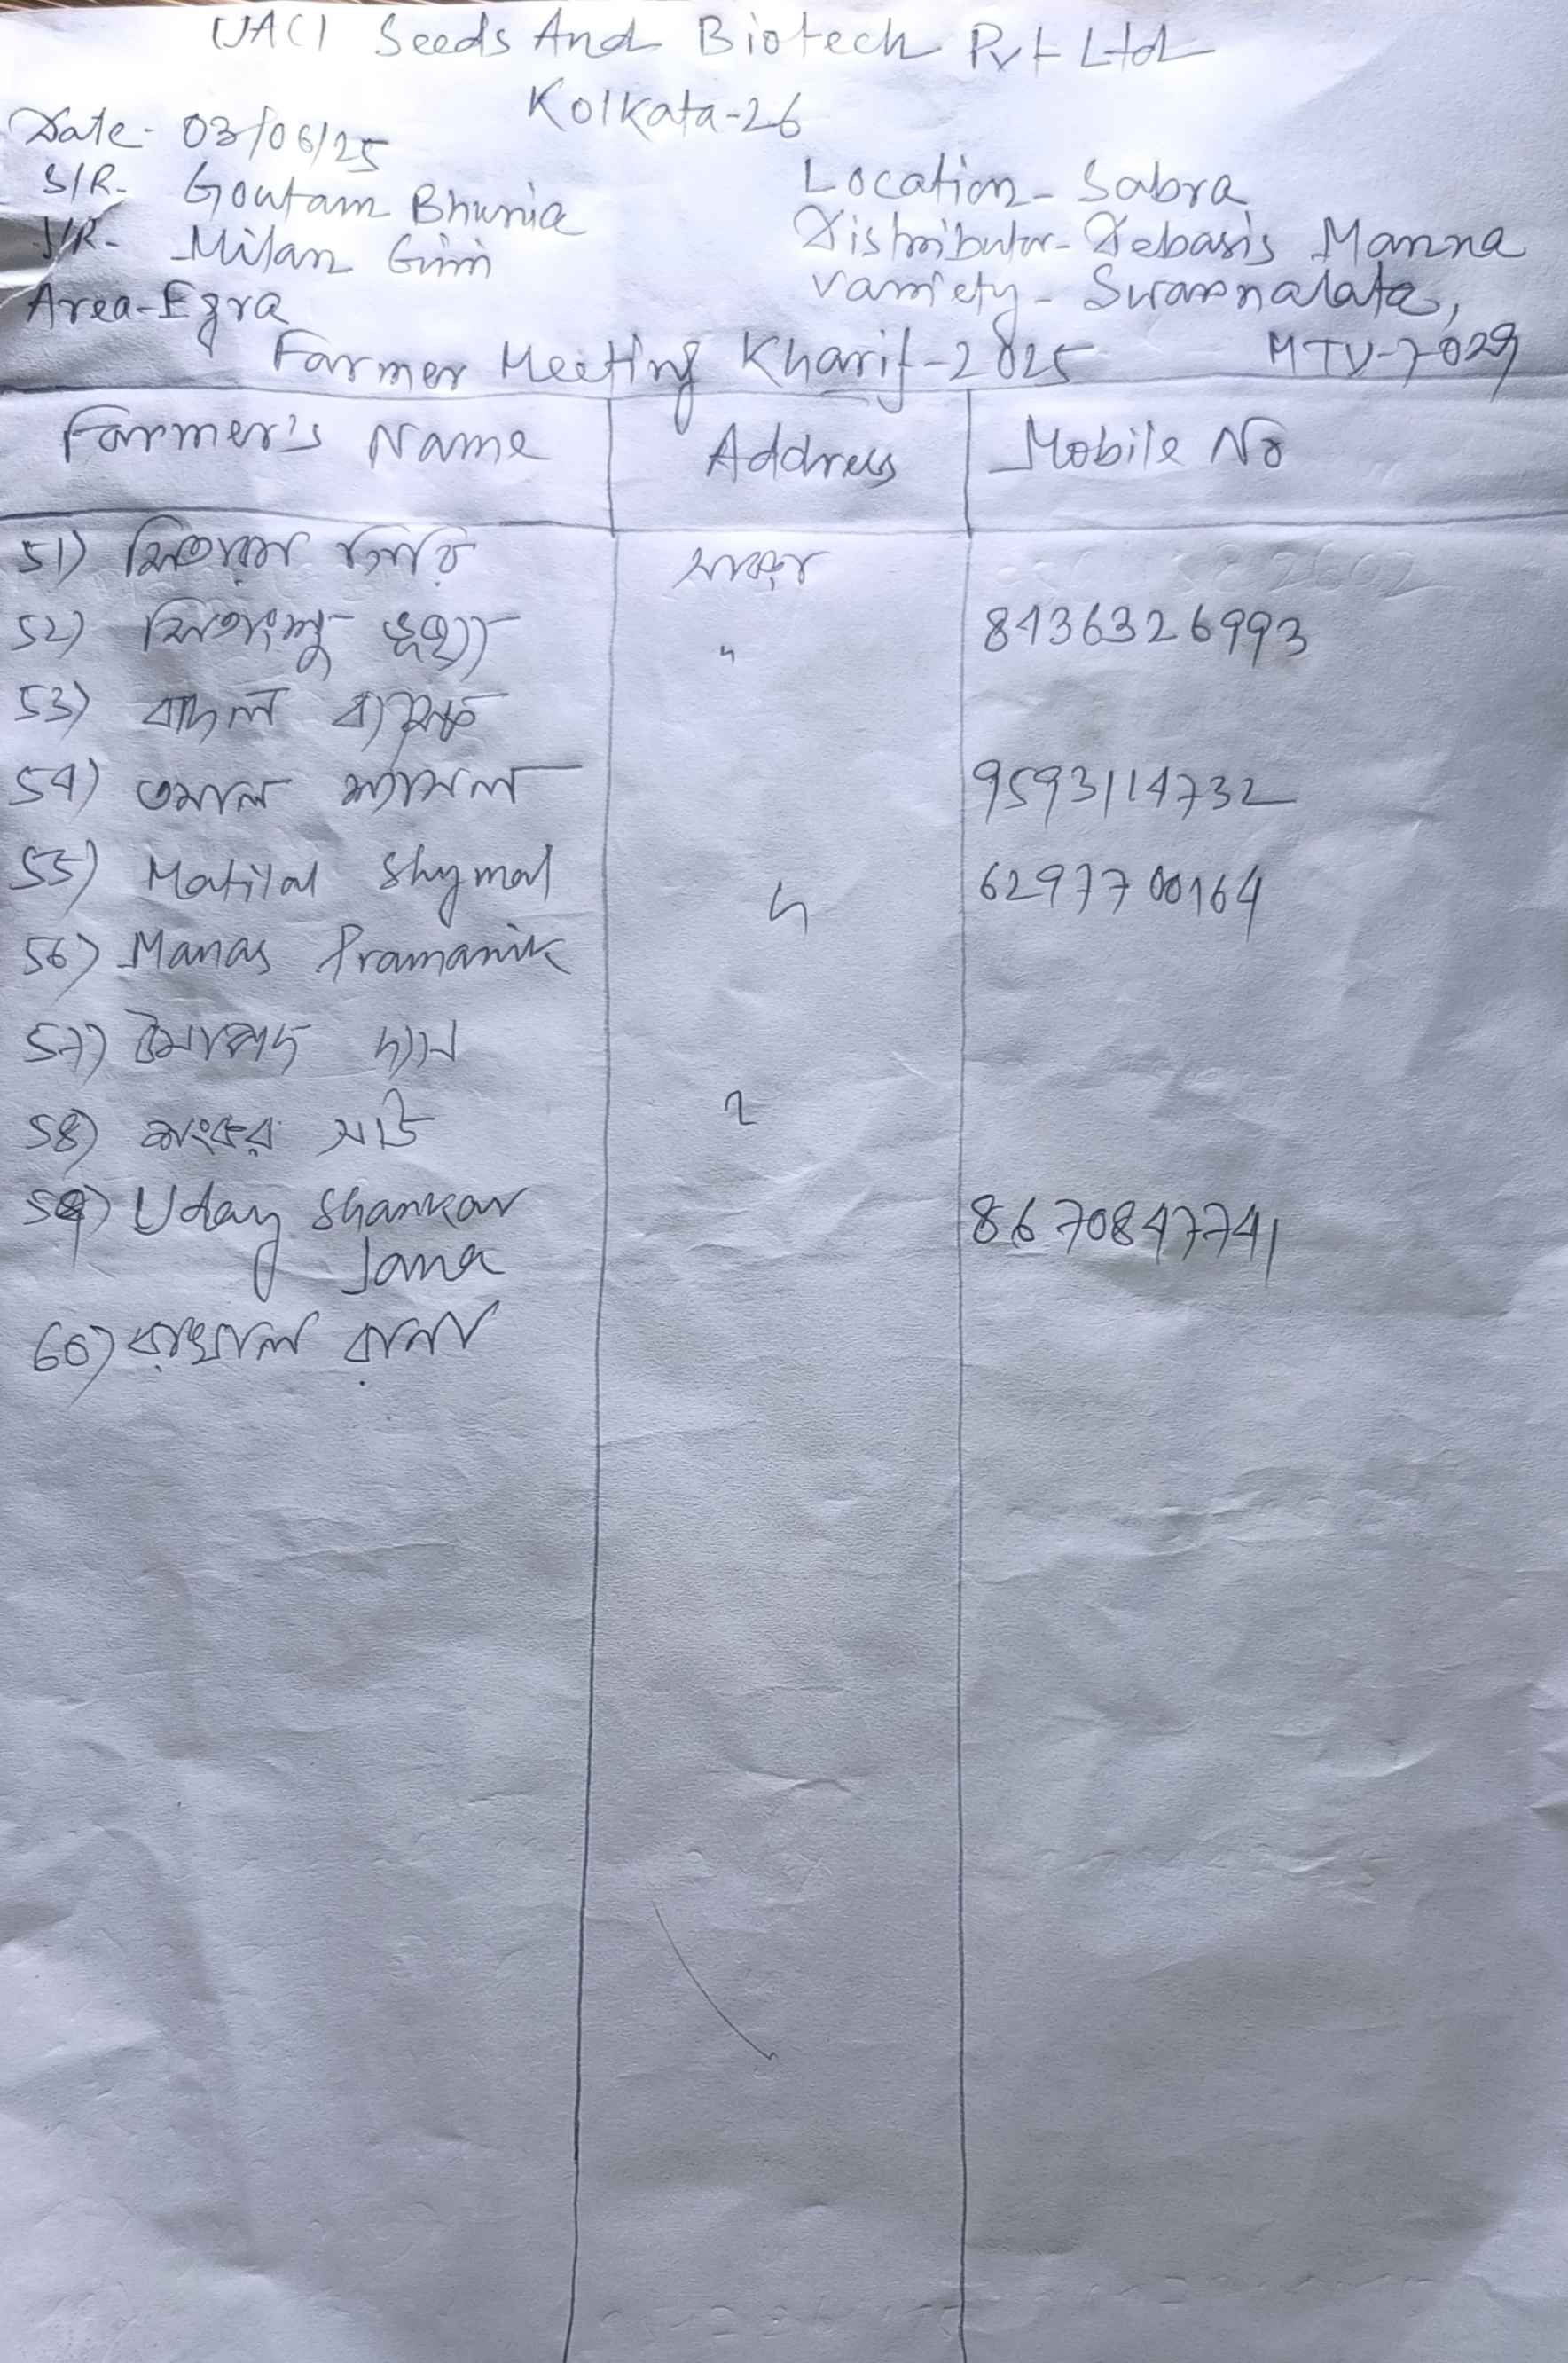 UACI Seeds And Biotech Pvt Ltd
Kolkata-26
Date- 03/06/25
S/R- Goutam Bhunia
S/R- Milan Giri
Area-Egra
Location- Sabra
Distributor- Debasis Manna
variety- Swarnalata,
MTU-7029
Farmer Meeting Kharif-2025
Farmer's Name Address Mobile No
51)
52) সিতাংশু ভূঞ্যা " 8436326993
53) বাদল
54) তমাল শ্যামল 9593114732
55) Matilal Shymal 6297700164
56) Manas Pramanik
57) দাস
58) শংকর সাউ
59) Uday Shankar
Jana 8670847741
60) রাখাল রানা